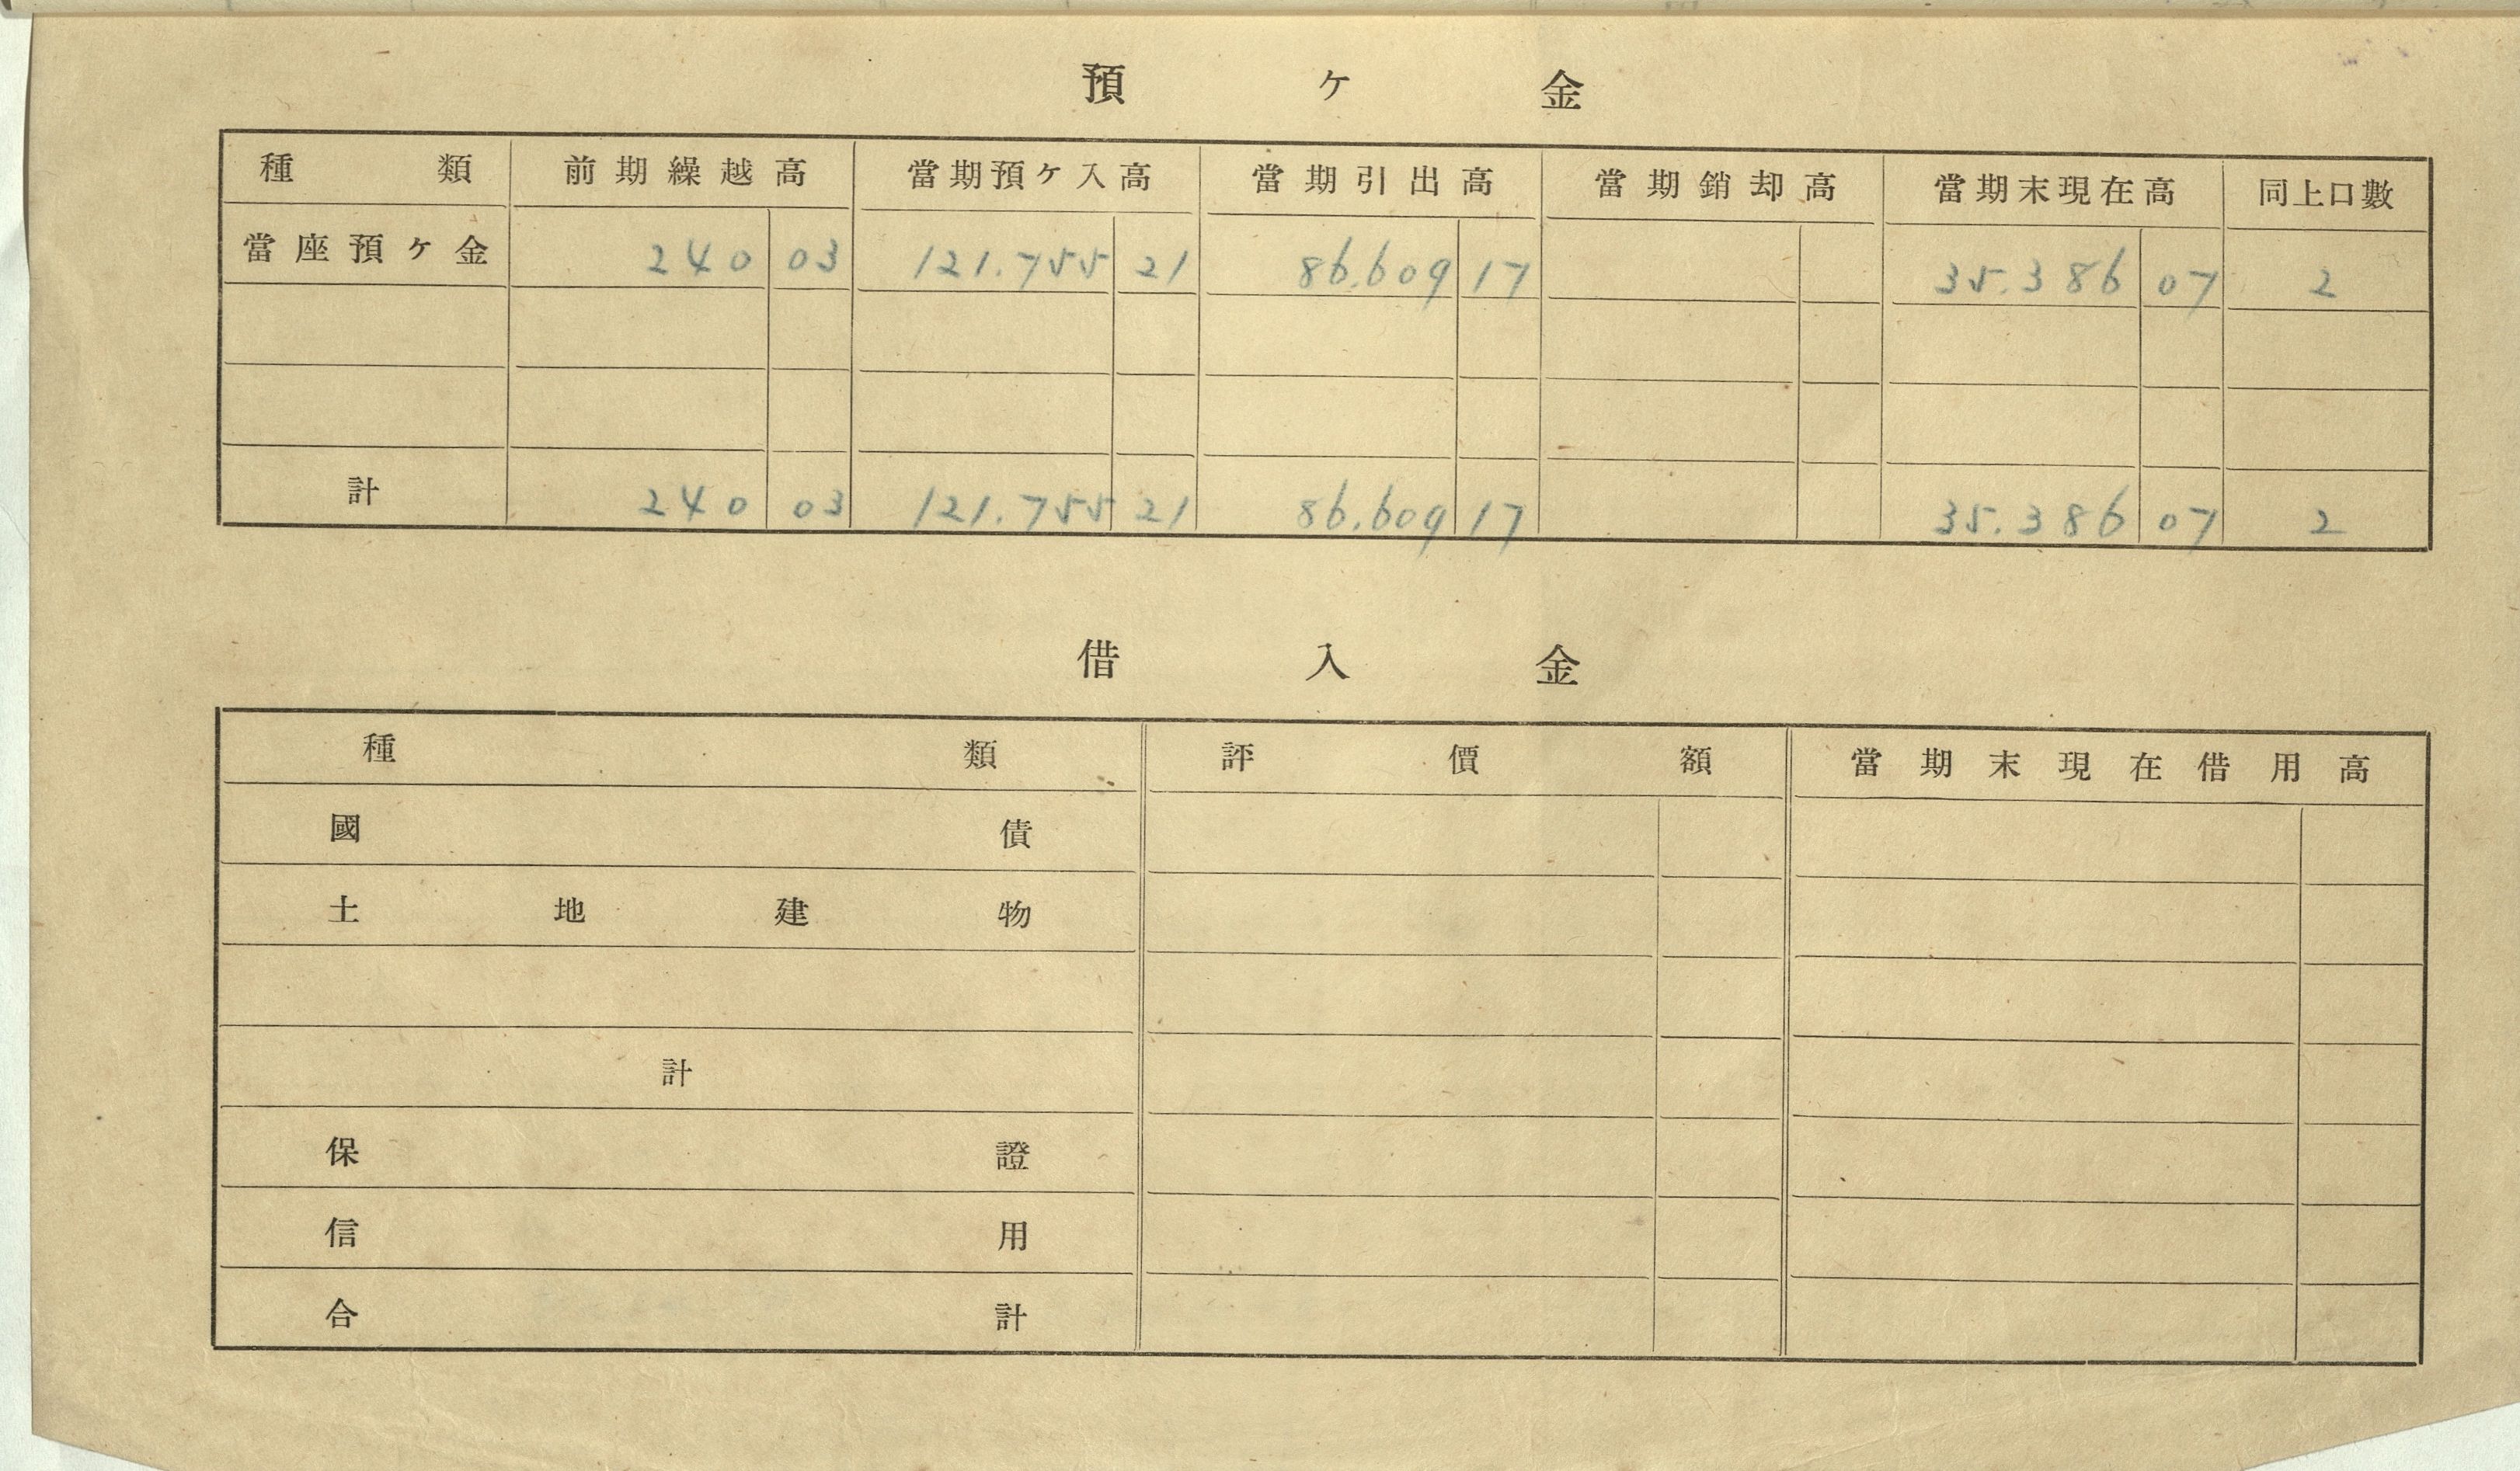 預ケ金
種類 前期繰越高 當期預ケ入高 當期引出高 當期銷却高 當期末現在高 同上口數
當座預ケ金 240 03 121.755 21 86.609 17 35.386 07 2
計 240 03 121.755 21 86.609 17 35.386 07 2
借入金
種類 評價額 當期末現在借用高
國債
土地建物
計
保證
信用
合計